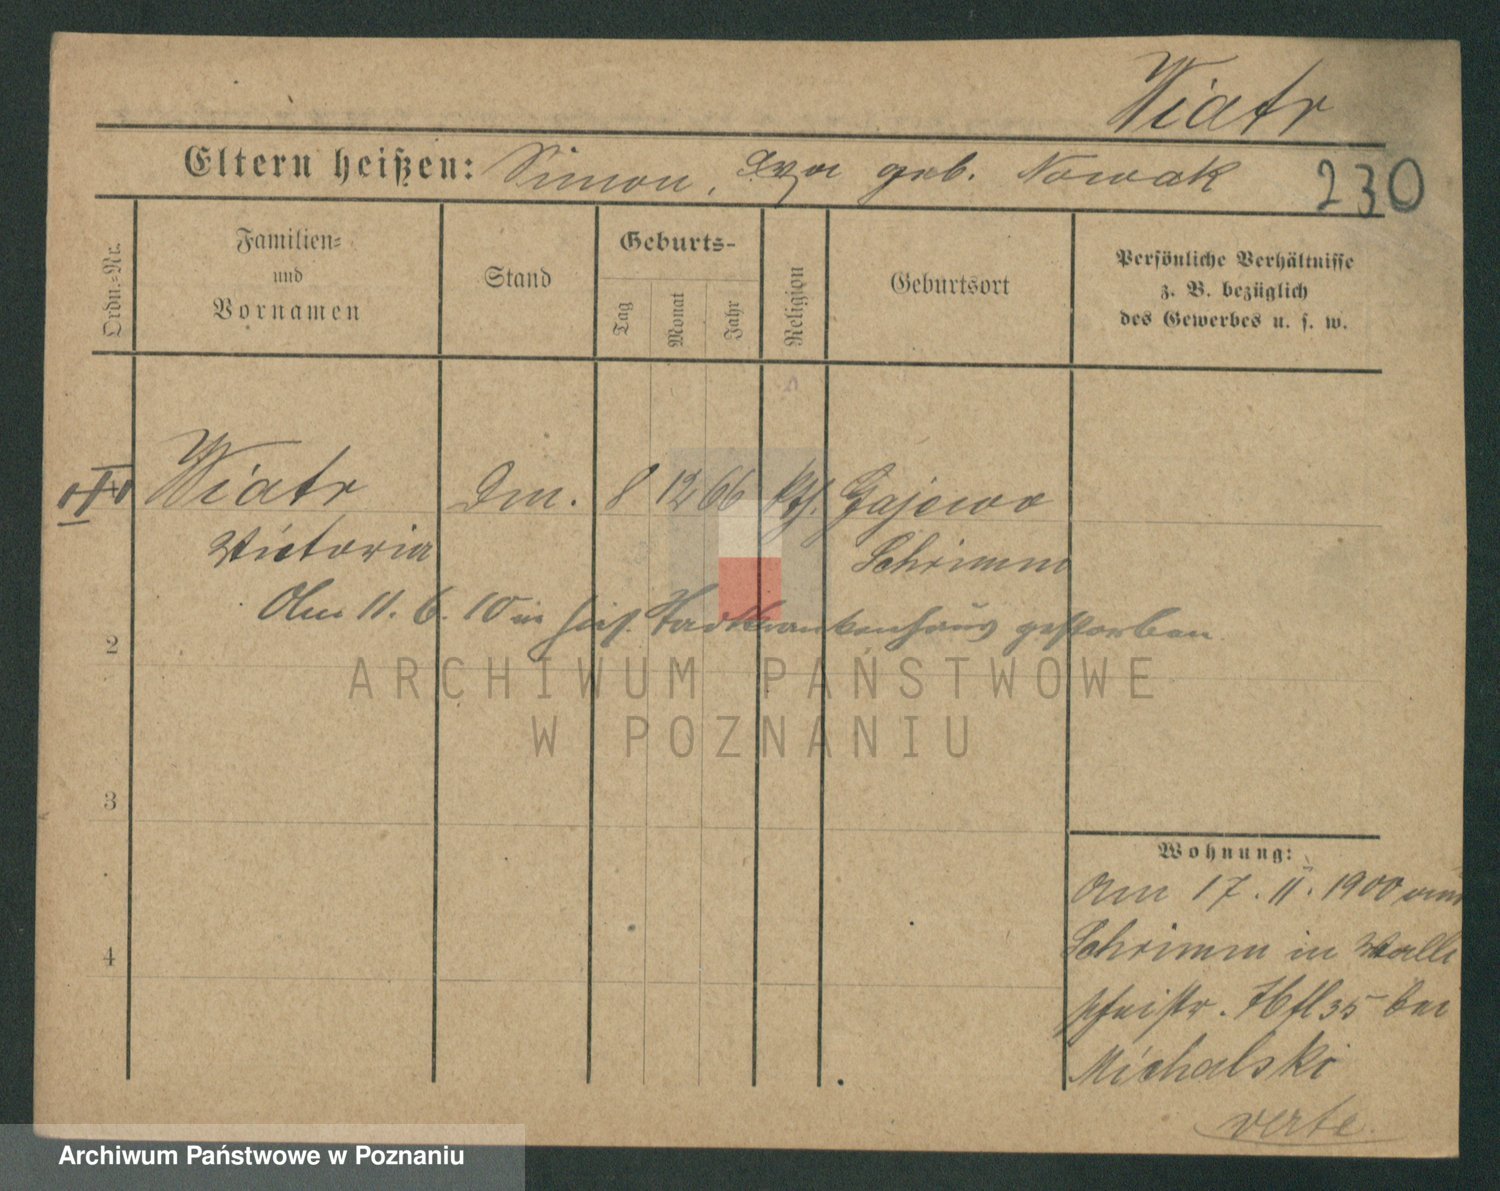 Wiatr
Eltern heißen: Simon, Eva geb. Nowak
230
Ordn.-Nr.
Familien-
und
Vornamen
Stand
Geburts-
Tag
Monat
Jahr
Religion
Geburtsort
Persönliche Verhältnisse
z. B. bezüglich
des Gewerbes u. s. w.
Wiatr Dm. 8 12 66 kth. Gajewo
Victoria Schrimm
Am 11. 6. 10 in hies. Stadtkrankenhaus gestorben
2
ARCHIWUM PAŃSTWOWE
W POZNANIU
3
Wohnung:
Am 17. II. 1900 von
4
Schrimm in Walli
scheistr. 35 bei
Michalski
verte.
Archiwum Państwowe w Poznaniu